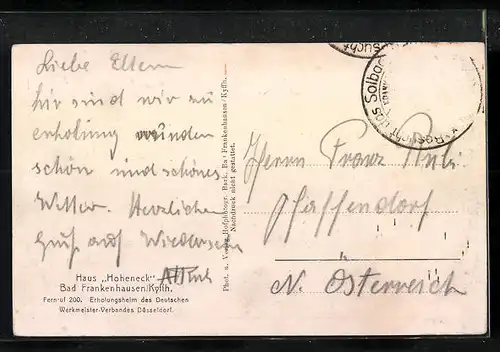 Liebe Eltern
hir sind wir zu
erholung wunder
schön und schönes
Wetter. Herzliche
Gruß auf Wiedersehn
Haus „Hoheneck“
Bad Frankenhausen/Kyffh.
Fernruf 200. Erholungsheim des Deutschen
Werkmeister-Verbandes Düsseldorf.
Phot. u. Verlag Hofphotogr. Bad Frankenhausen/Kyffh.
Nachdruck nicht gestattet.
Besucht
das Solbad
Herrn Franz
Pfaffendorf
N. Österreich